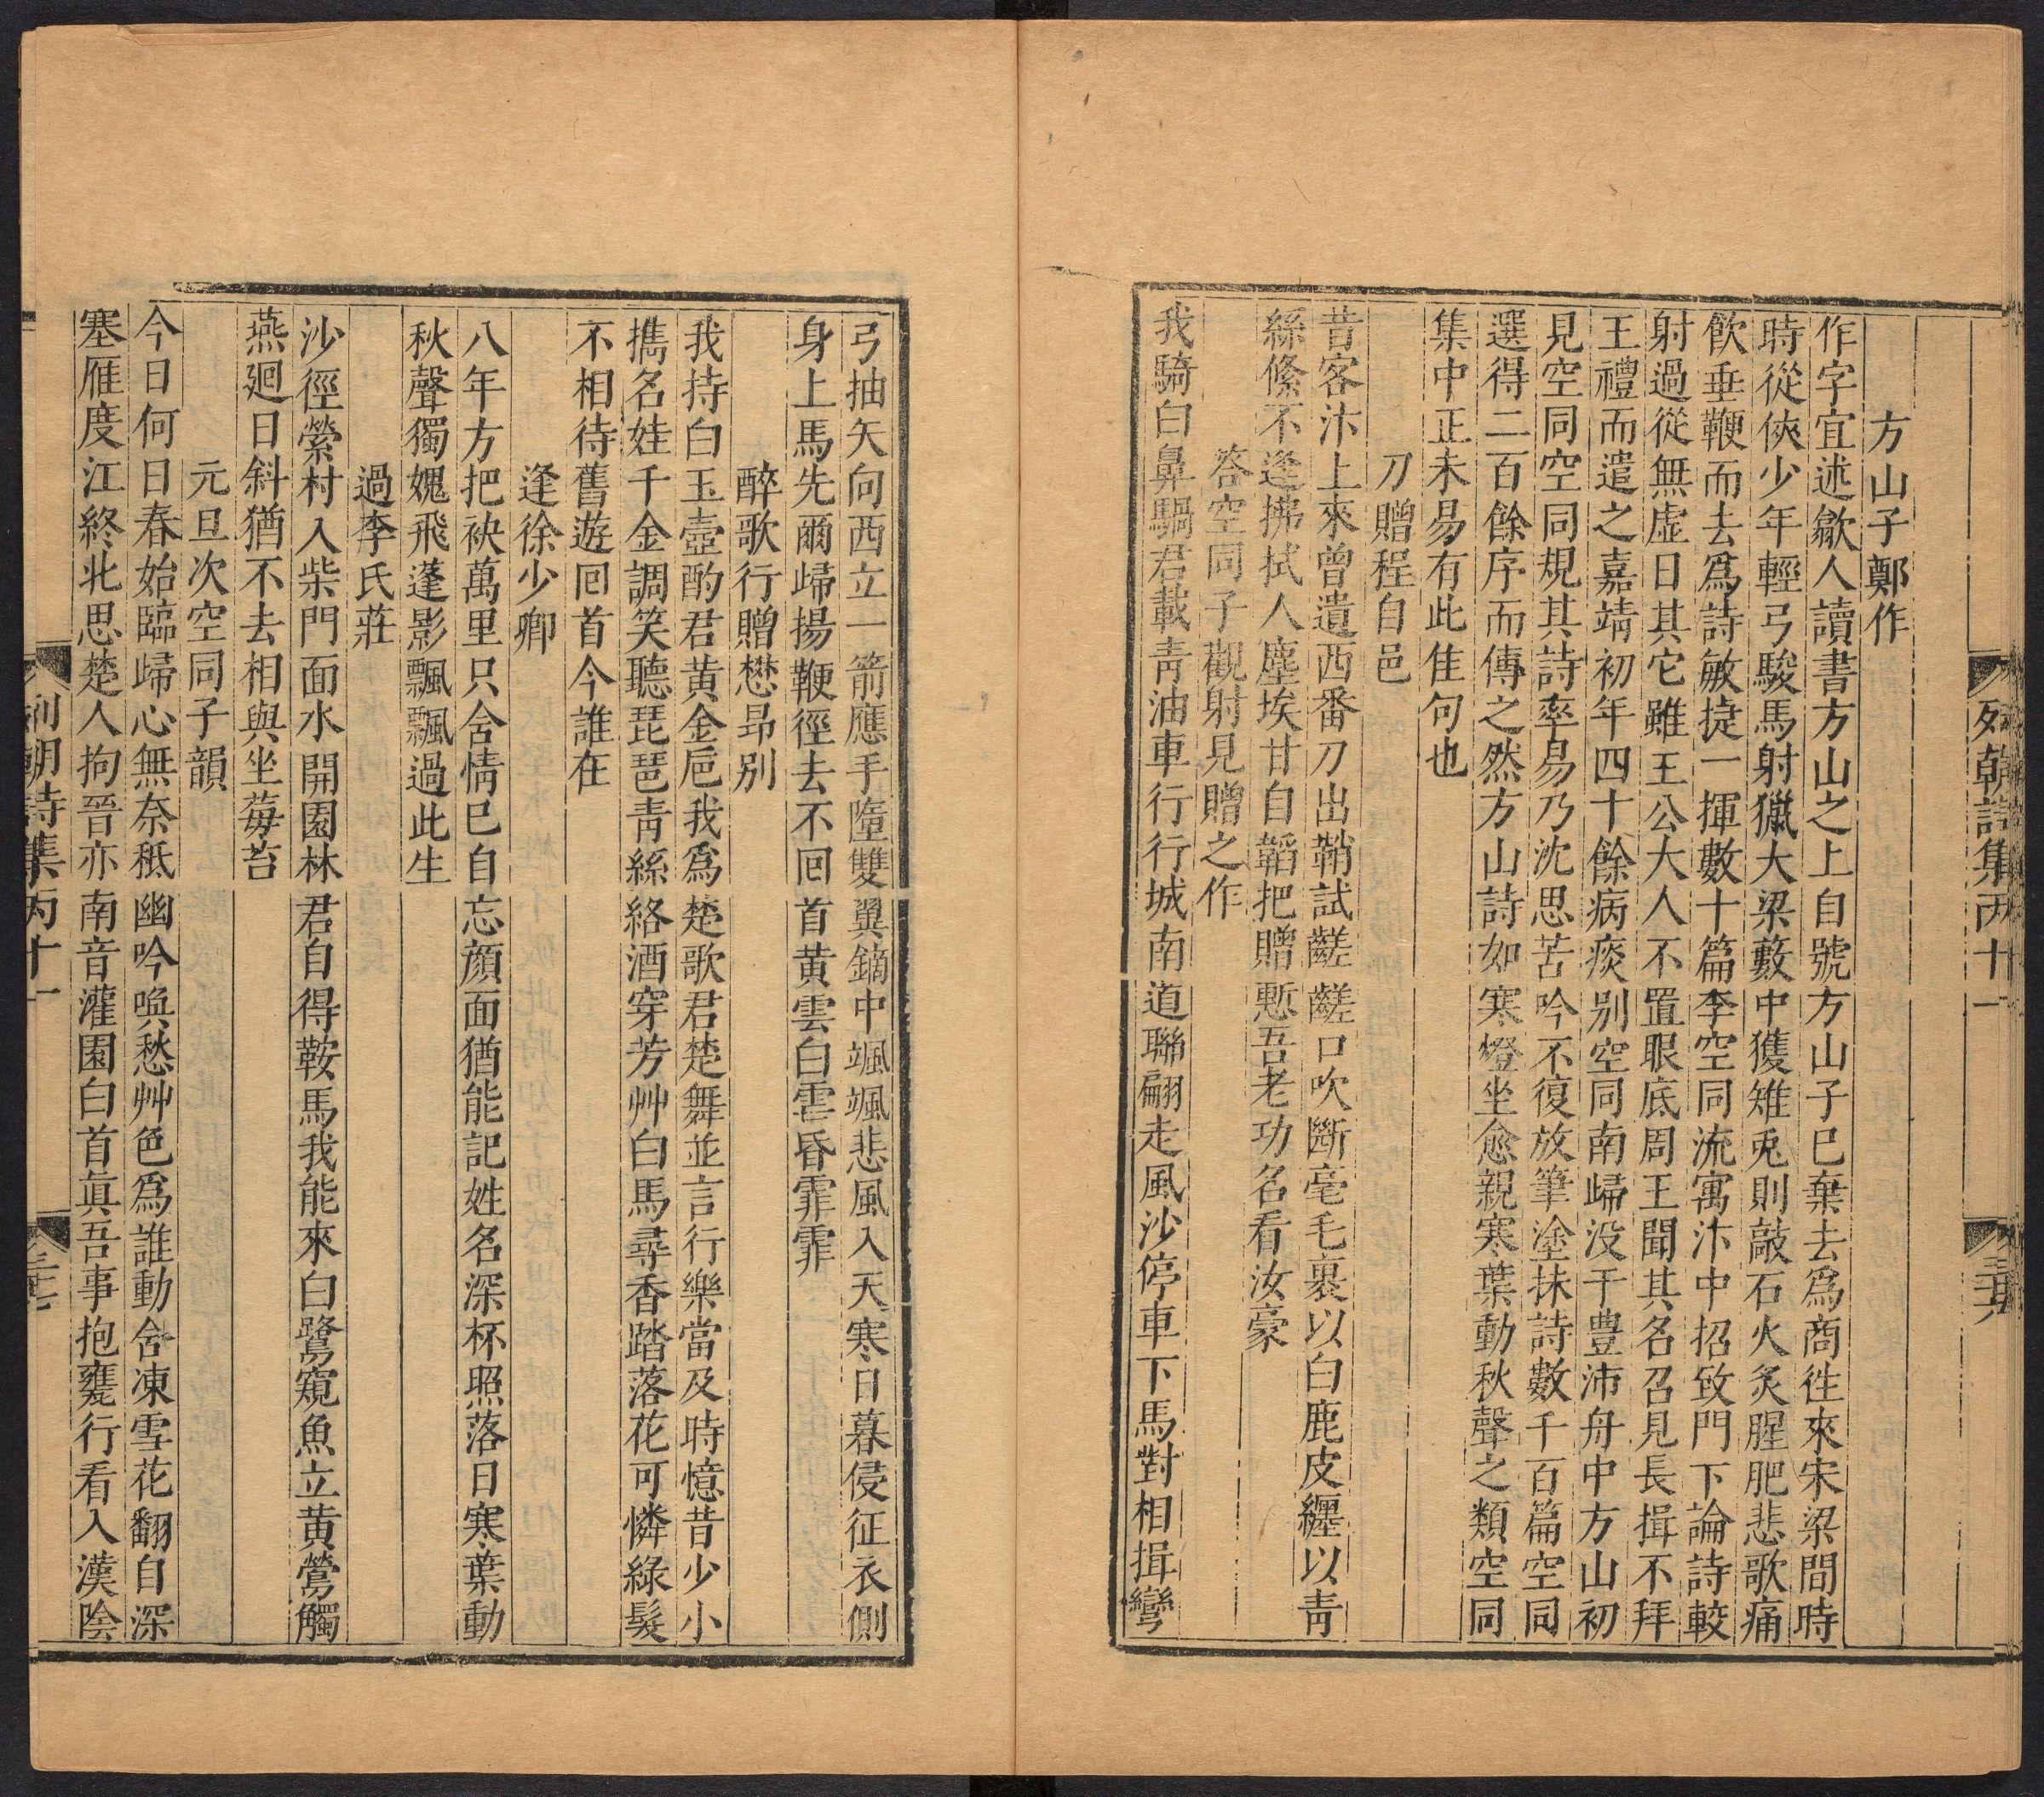 列朝詩集丙十一
三六
方山子鄭作
作字宜述歙人讀書方山之上自號方山子已棄去爲商徃來宋梁間時
時從俠少年輕弓駿馬射獵大梁藪中獲雉兎則敲石火炙腥肥悲歌痛
飲垂鞭而去爲詩敏捷一揮數十篇李空同流寓汴中招致門下論詩較
射過從無虛日其它雖王公大人不置眼底周王聞其名召見長揖不拜
王禮而遣之嘉靖初年四十餘病痰别空同南歸没于豊沛舟中方山初
見空同空同規其詩率易乃沈思苦吟不復放筆塗抹詩數千百篇空同
選得二百餘序而傳之然方山詩如寒燈坐愈親寒葉動秋聲之類空同
集中正未易有此佳句也
刀贈程自邑
昔客汴上來曾遺西番刀出鞘試齹齹口吹斷毫毛裹以白鹿皮纒以青
絲絛不逢拂拭人塵埃甘自韜把贈慙吾老功名看汝豪
答空同子觀射見贈之作
我騎白鼻騧君載青油車行行城南道聯翩走風沙停車下馬對相揖彎
弓抽矢向西立一箭應手墮雙翼鏑中颯颯悲風入天寒日暮侵征衣側
身上馬先爾歸揚鞭徑去不囘首黄雲白雲昏霏霏
醉歌行贈懋昂别
我持白玉壺酌君黄金巵我爲楚歌君楚舞並言行樂當及時憶昔少小
擕名娃千金調笑聽琵琶青絲絡酒穿芳艸白馬尋香踏落花可憐綠髮
不相待舊遊囘首今誰在
逢徐少卿
八年方把袂萬里只含情已自忘顔面猶能記姓名深杯照落日寒葉動
秋聲獨媿飛蓬影飄飄過此生
過李氏莊
沙徑縈村入柴門面水開園林君自得鞍馬我能來白鷺窺魚立黄鶯觸
燕廻日斜猶不去相與坐莓苔
元旦次空同子韻
今日何日春始臨歸心無奈秪幽吟喚愁艸色爲誰動含凍雪花翻自深
塞雁度江終北思楚人拘晉亦南音灌園白首眞吾事抱甕行看入漢陰
列朝詩集丙十一
三七